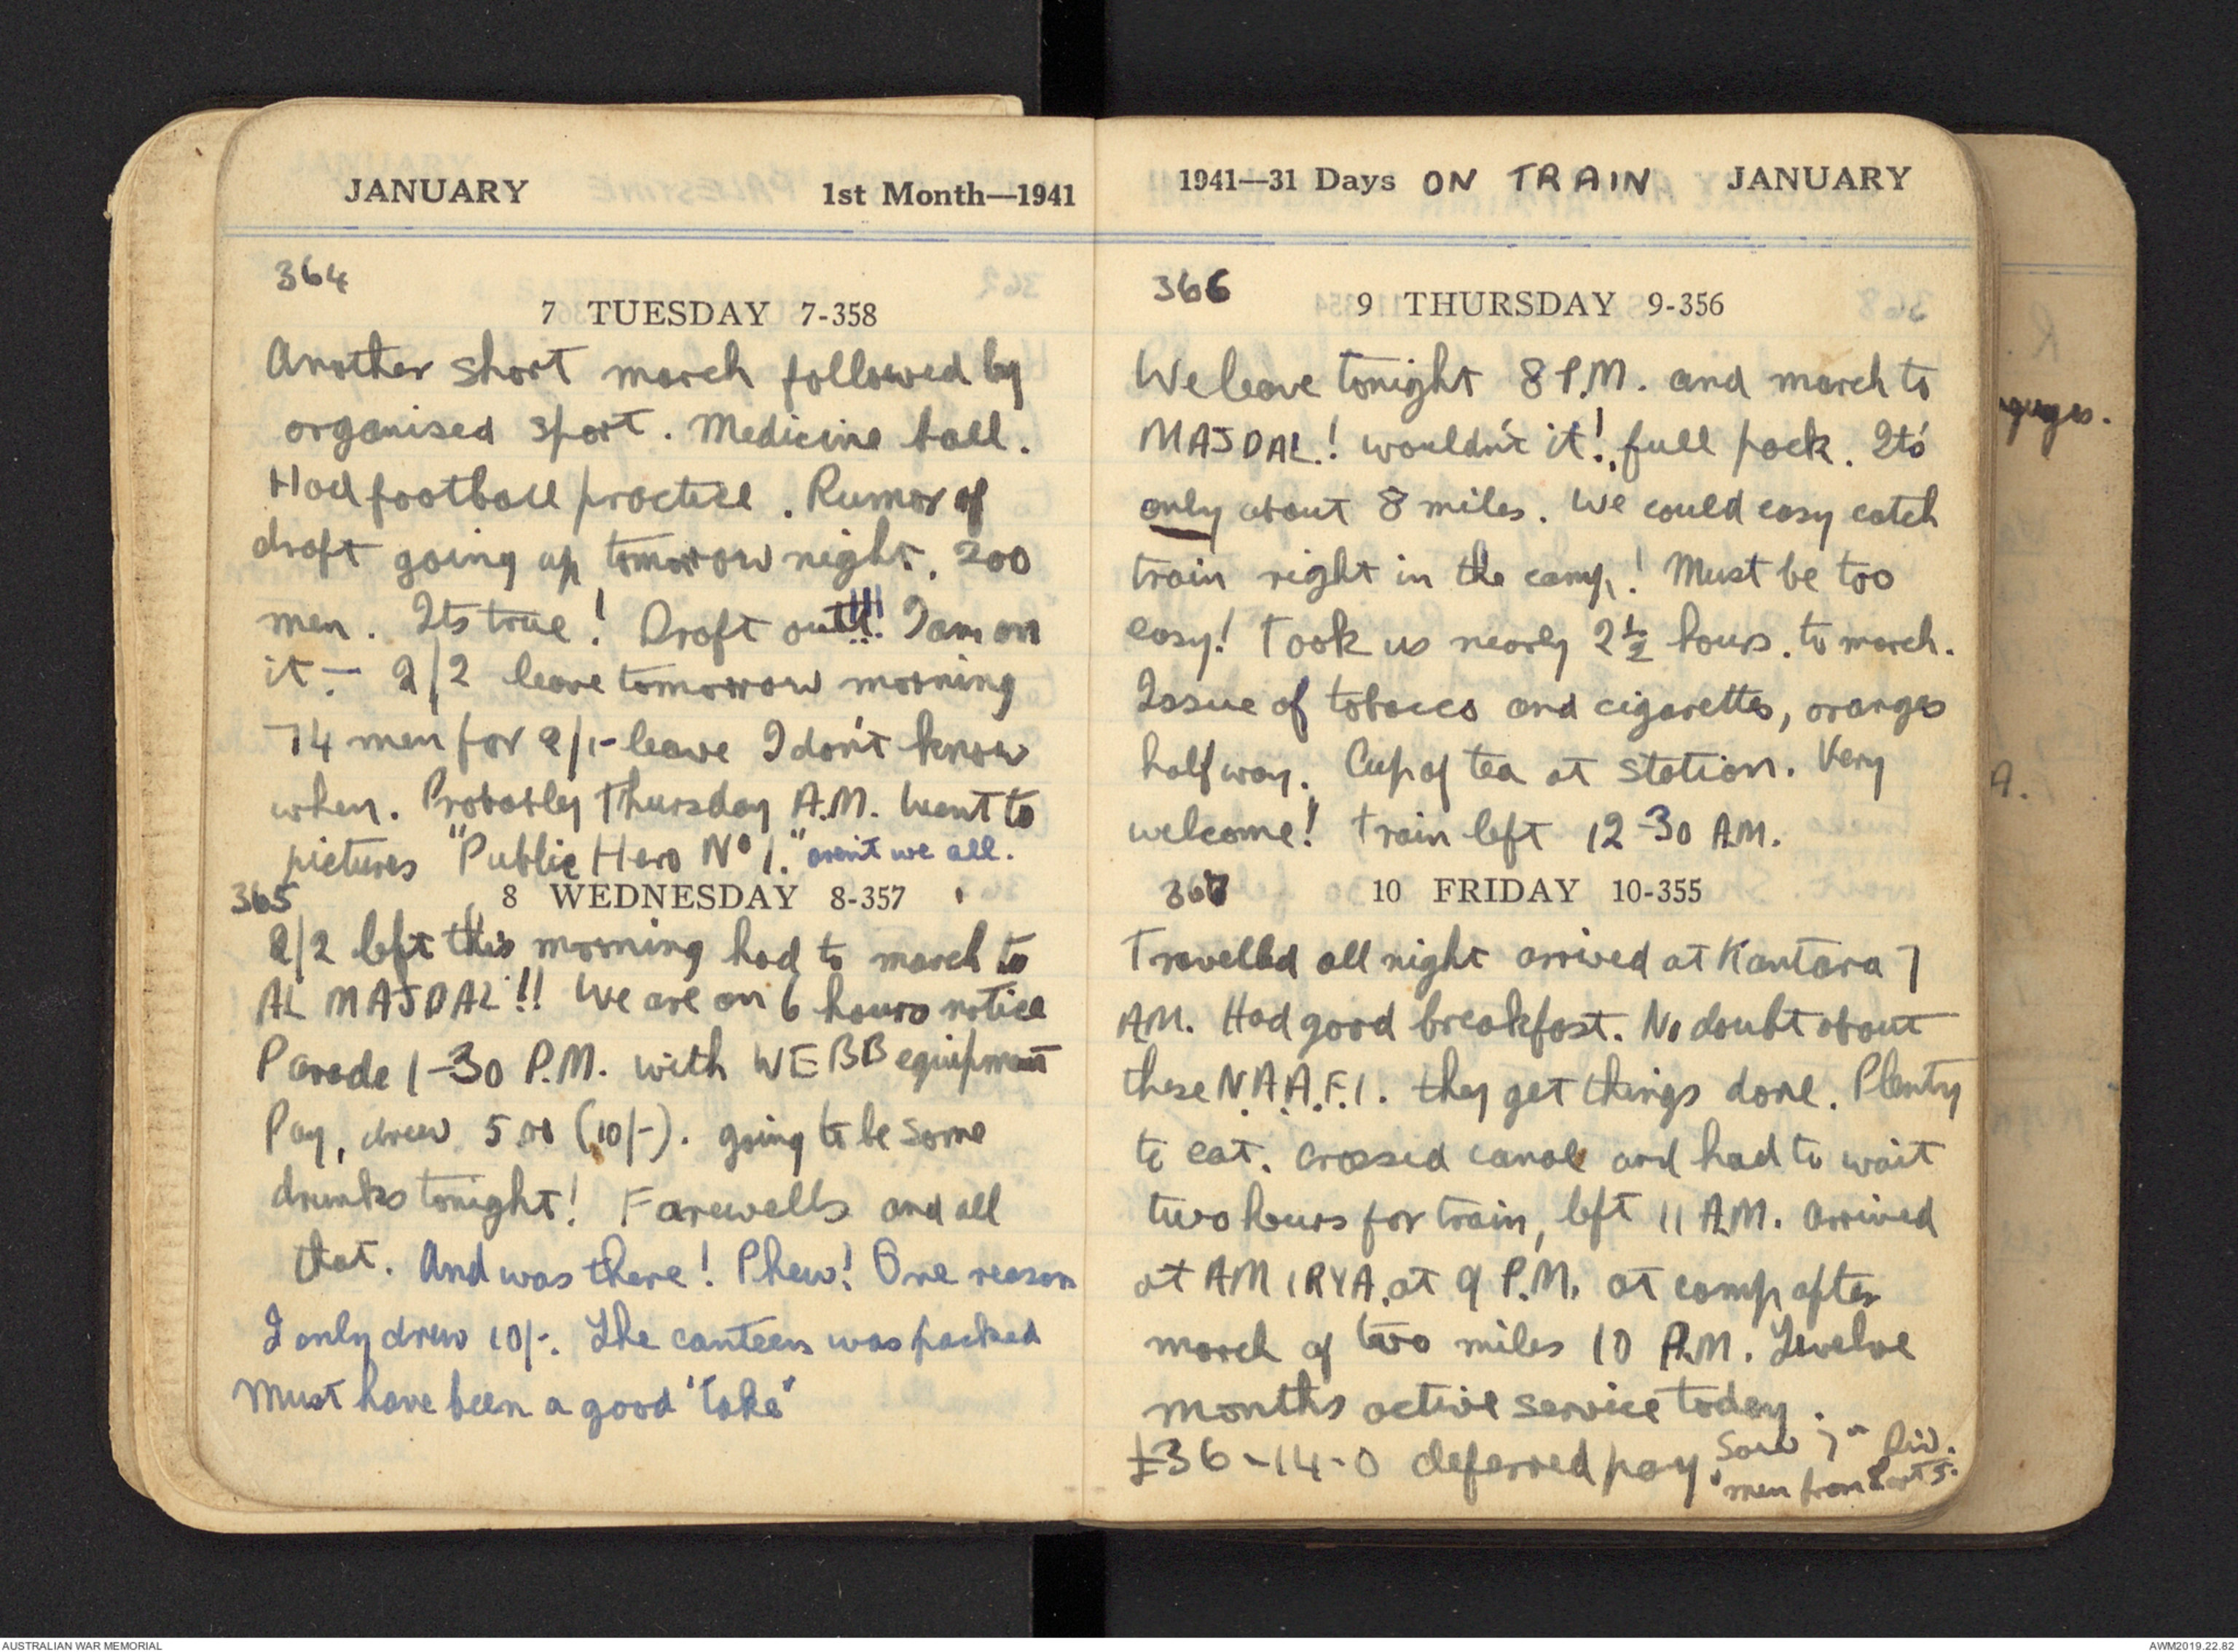 JANUARY 1st Month—1941
364
7 TUESDAY 7-358
Another short march followed by
organised sport. Medicine ball.
Had football practice. Rumor of
draft going up tomorrow night. 200
men. Its true! Draft out!!! I am on
it:— 2/2 leave tomorrow morning
74 men for 2/1- leave I don't know
when. Probably Thursday A.M. Went to
pictures "Public Hero No 1." aren't we all.
365 8 WEDNESDAY 8-357
2/2 left this morning had to march to
AL MAJDAL!! We are on 6 hours notice
Parade 1-30 P.M. with WEBB equipment
Pay, drew 500 (10/-). going to be some
drinks tonight! Farewells and all
that. And was there! Phew! One reason
I only drew 10/-. The canteen was packed
Must have been a good 'take'
1941—31 Days ON TRAIN JANUARY
366
9 THURSDAY 9-356
We leave tonight 8 P.M. and march to
MAJDAL! wouldn't it! full pack. Its
only about 8 miles. We could easy catch
train right in the camp! Must be too
easy! Took us nearly 2½ hours. to march.
Issue of tobacco and cigarettes, oranges
half way. Cup of tea at station. Very
welcome! Train left 12-30 AM.
367 10 FRIDAY 10-355
Travelled all night arrived at Kantara 7
AM. Had good breakfast. No doubt about
these N.A.A.F.I. they get things done. Plenty
to eat. Crossed canal and had to wait
two hours for train, left 11 A.M. arrived
at AMIRYA. at 9 P.M. at camp after
march of two miles 10 P.M. Twelve
months active service today.
£36-14-0 deferred pay. Saw 7th Div.
men from
nguages.
A.
AUSTRALIAN WAR MEMORIAL AWM2019.22.82